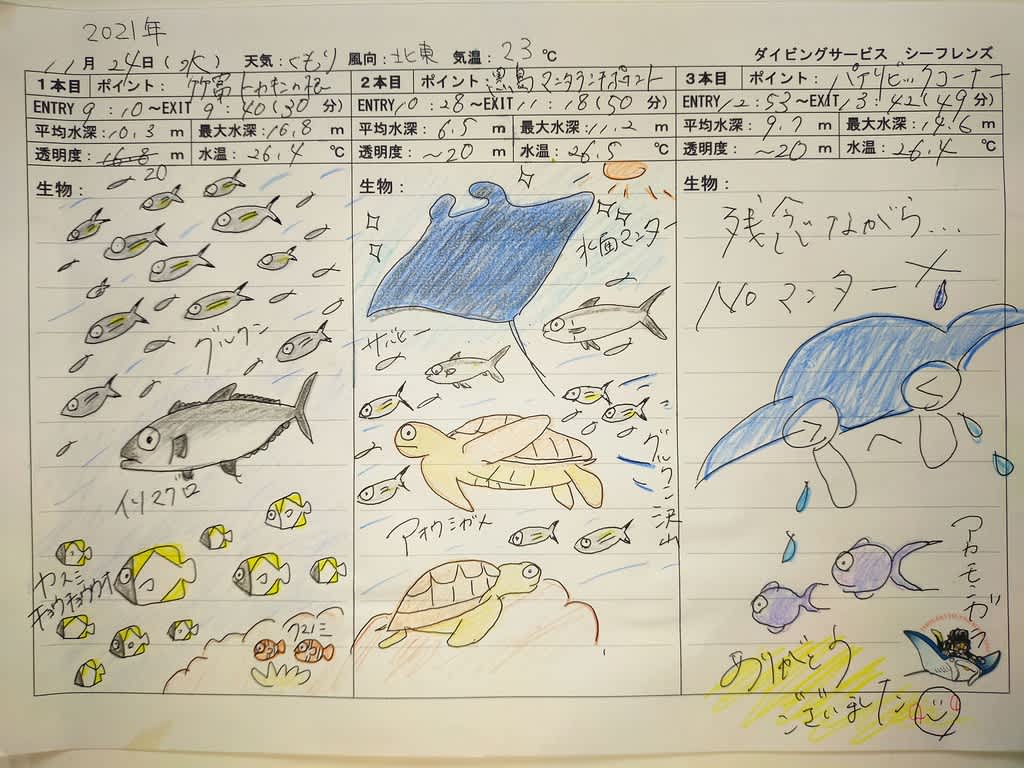 2021年
11月 24日(水) 天気:くもり 風向:北東 気温:23℃
ダイビングサービス シーフレンズ
1本目 ポイント:竹富トカキンの根
ENTRY 9:10~EXIT 9:40(30分)
平均水深:10.3 m 最大水深:16.8 m
透明度:16.8 m 水温:26.4 ℃
20
生物:
グルクン
イソマグロ
ヤスミ
チョウチョウウオ
クマノミ
2本目 ポイント:黒島マンタランチポイント
ENTRY 10:28~EXIT 11:18(50分)
平均水深:6.5 m 最大水深:11.2 m
透明度:~20 m 水温:26.5 ℃
生物:
水面マンター
アオウミガメ
グルクン沢山
3本目 ポイント:パナリビックコーナー
ENTRY 12:53~EXIT 13:42(49分)
平均水深:9.7 m 最大水深:14.6 m
透明度:~20 m 水温:26.4 ℃
生物:
残念ながら...
NOマンター
アカモンガラ
ありがとう
ございました